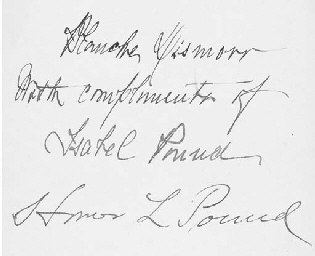 Blanche Dismorr
With compliments of
Isabel Pound
Homer L Pound